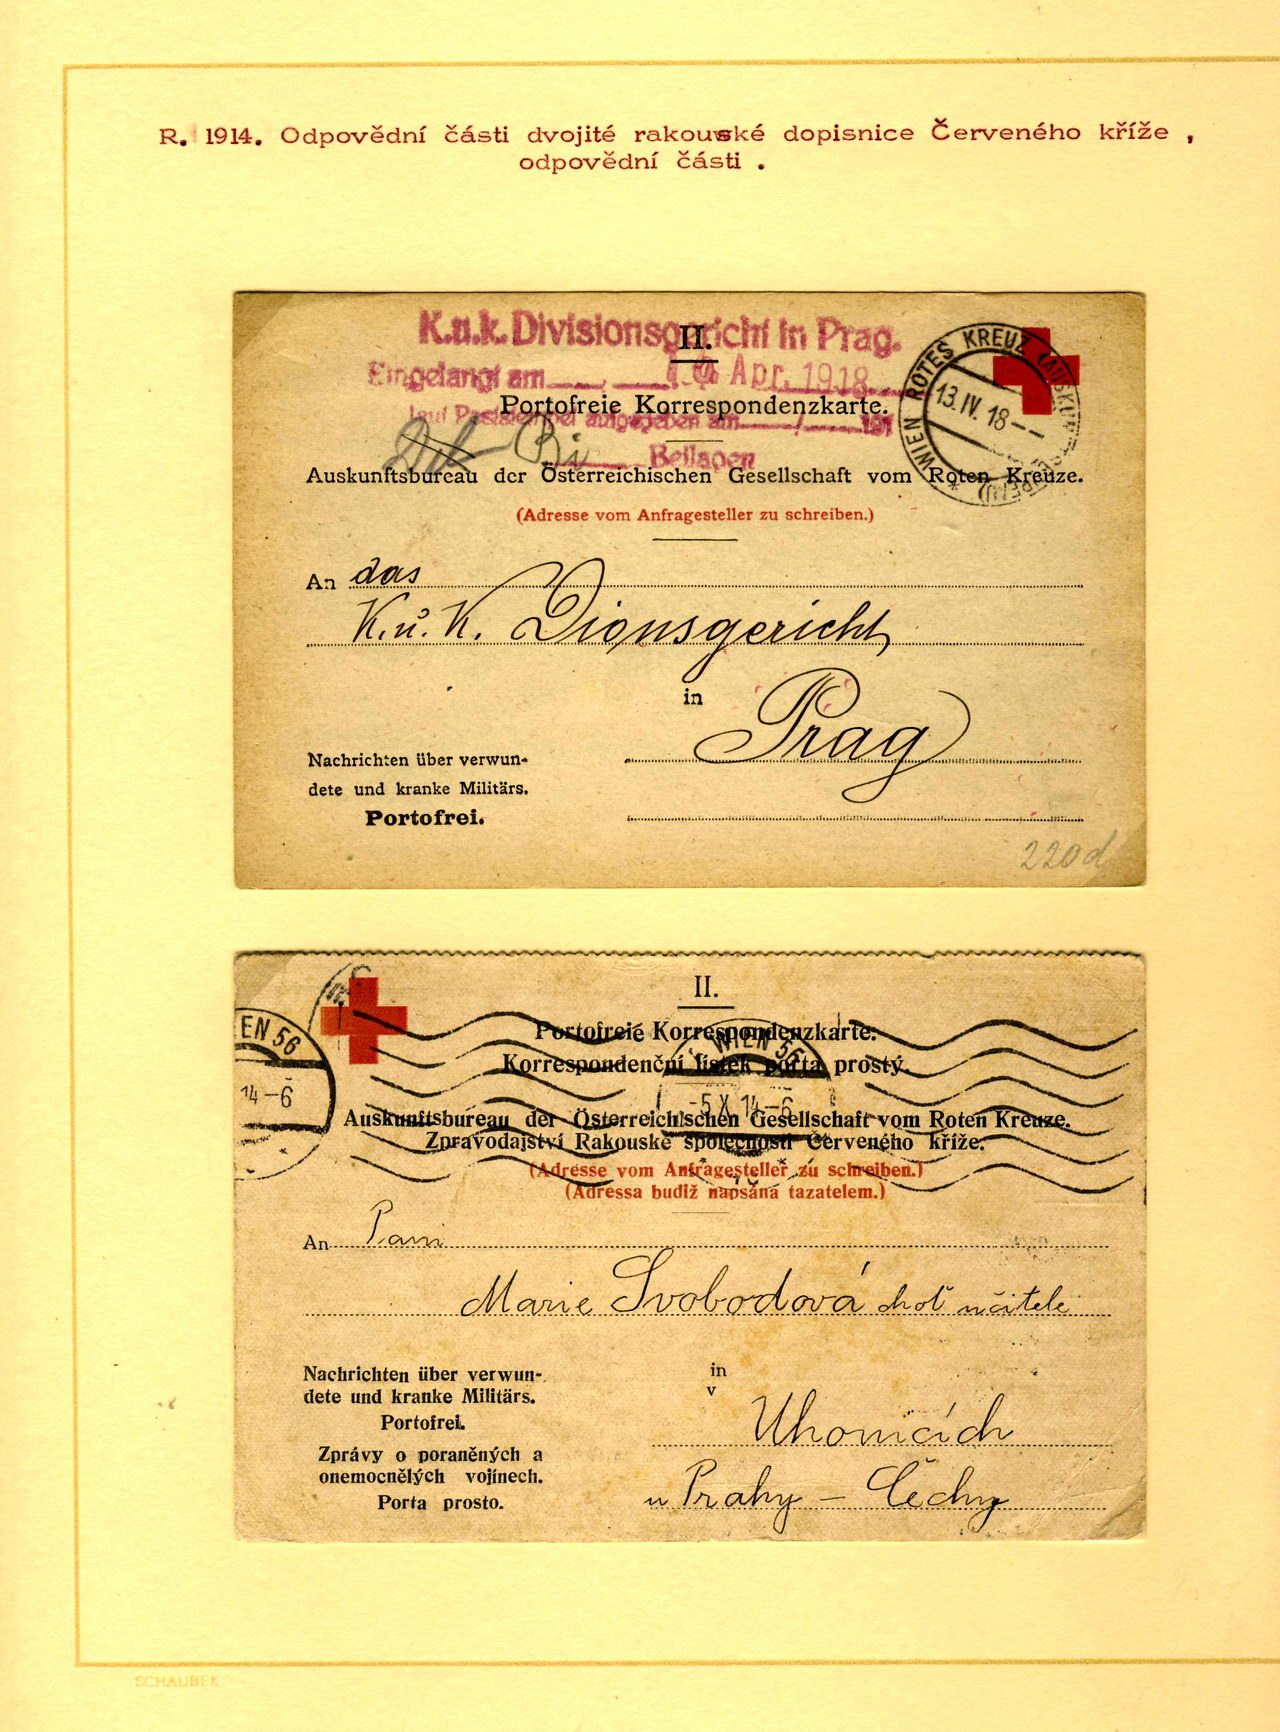 R. 1914. Odpovědní části dvojité rakouské dopisnice Červeného kříže ,
odpovědní části .
K.u.k. Divisionsgericht in Prag.
II.
Eingelangt am Apr. 1918
Portofreie Korrespondenzkarte.
laut Poststempel aufgegeben am 191
Beilagen
WIEN ROTES KREUZ
13.IV.18
Auskunftsbureau der Österreichischen Gesellschaft vom Roten Kreuze.
(Adresse vom Anfragesteller zu schreiben.)
An das
K. u. K. Dionsgericht
in Prag
Nachrichten über verwun-
dete und kranke Militärs.
Portofrei.
220d
II.
Portofreie Korrespondenzkarte.
Korrespondenční lístek porta prostý.
EN 56
14-6
WIEN 56
-5 X 14-6
Auskunftsbureau der Österreichischen Gesellschaft vom Roten Kreuze.
Zpravodajství Rakouské společnosti Červeného kříže.
(Adresse vom Anfragesteller zu schreiben.)
(Adressa budiž napsána tazatelem.)
An Paní
Marie Svobodová choť učitele
Nachrichten über verwun-
dete und kranke Militärs.
Portofrei.
in
v
Uhonicích
Zprávy o poraněných a
onemocnělých vojínech.
Porta prosto.
u Prahy – Čechy
SCHAUBEK